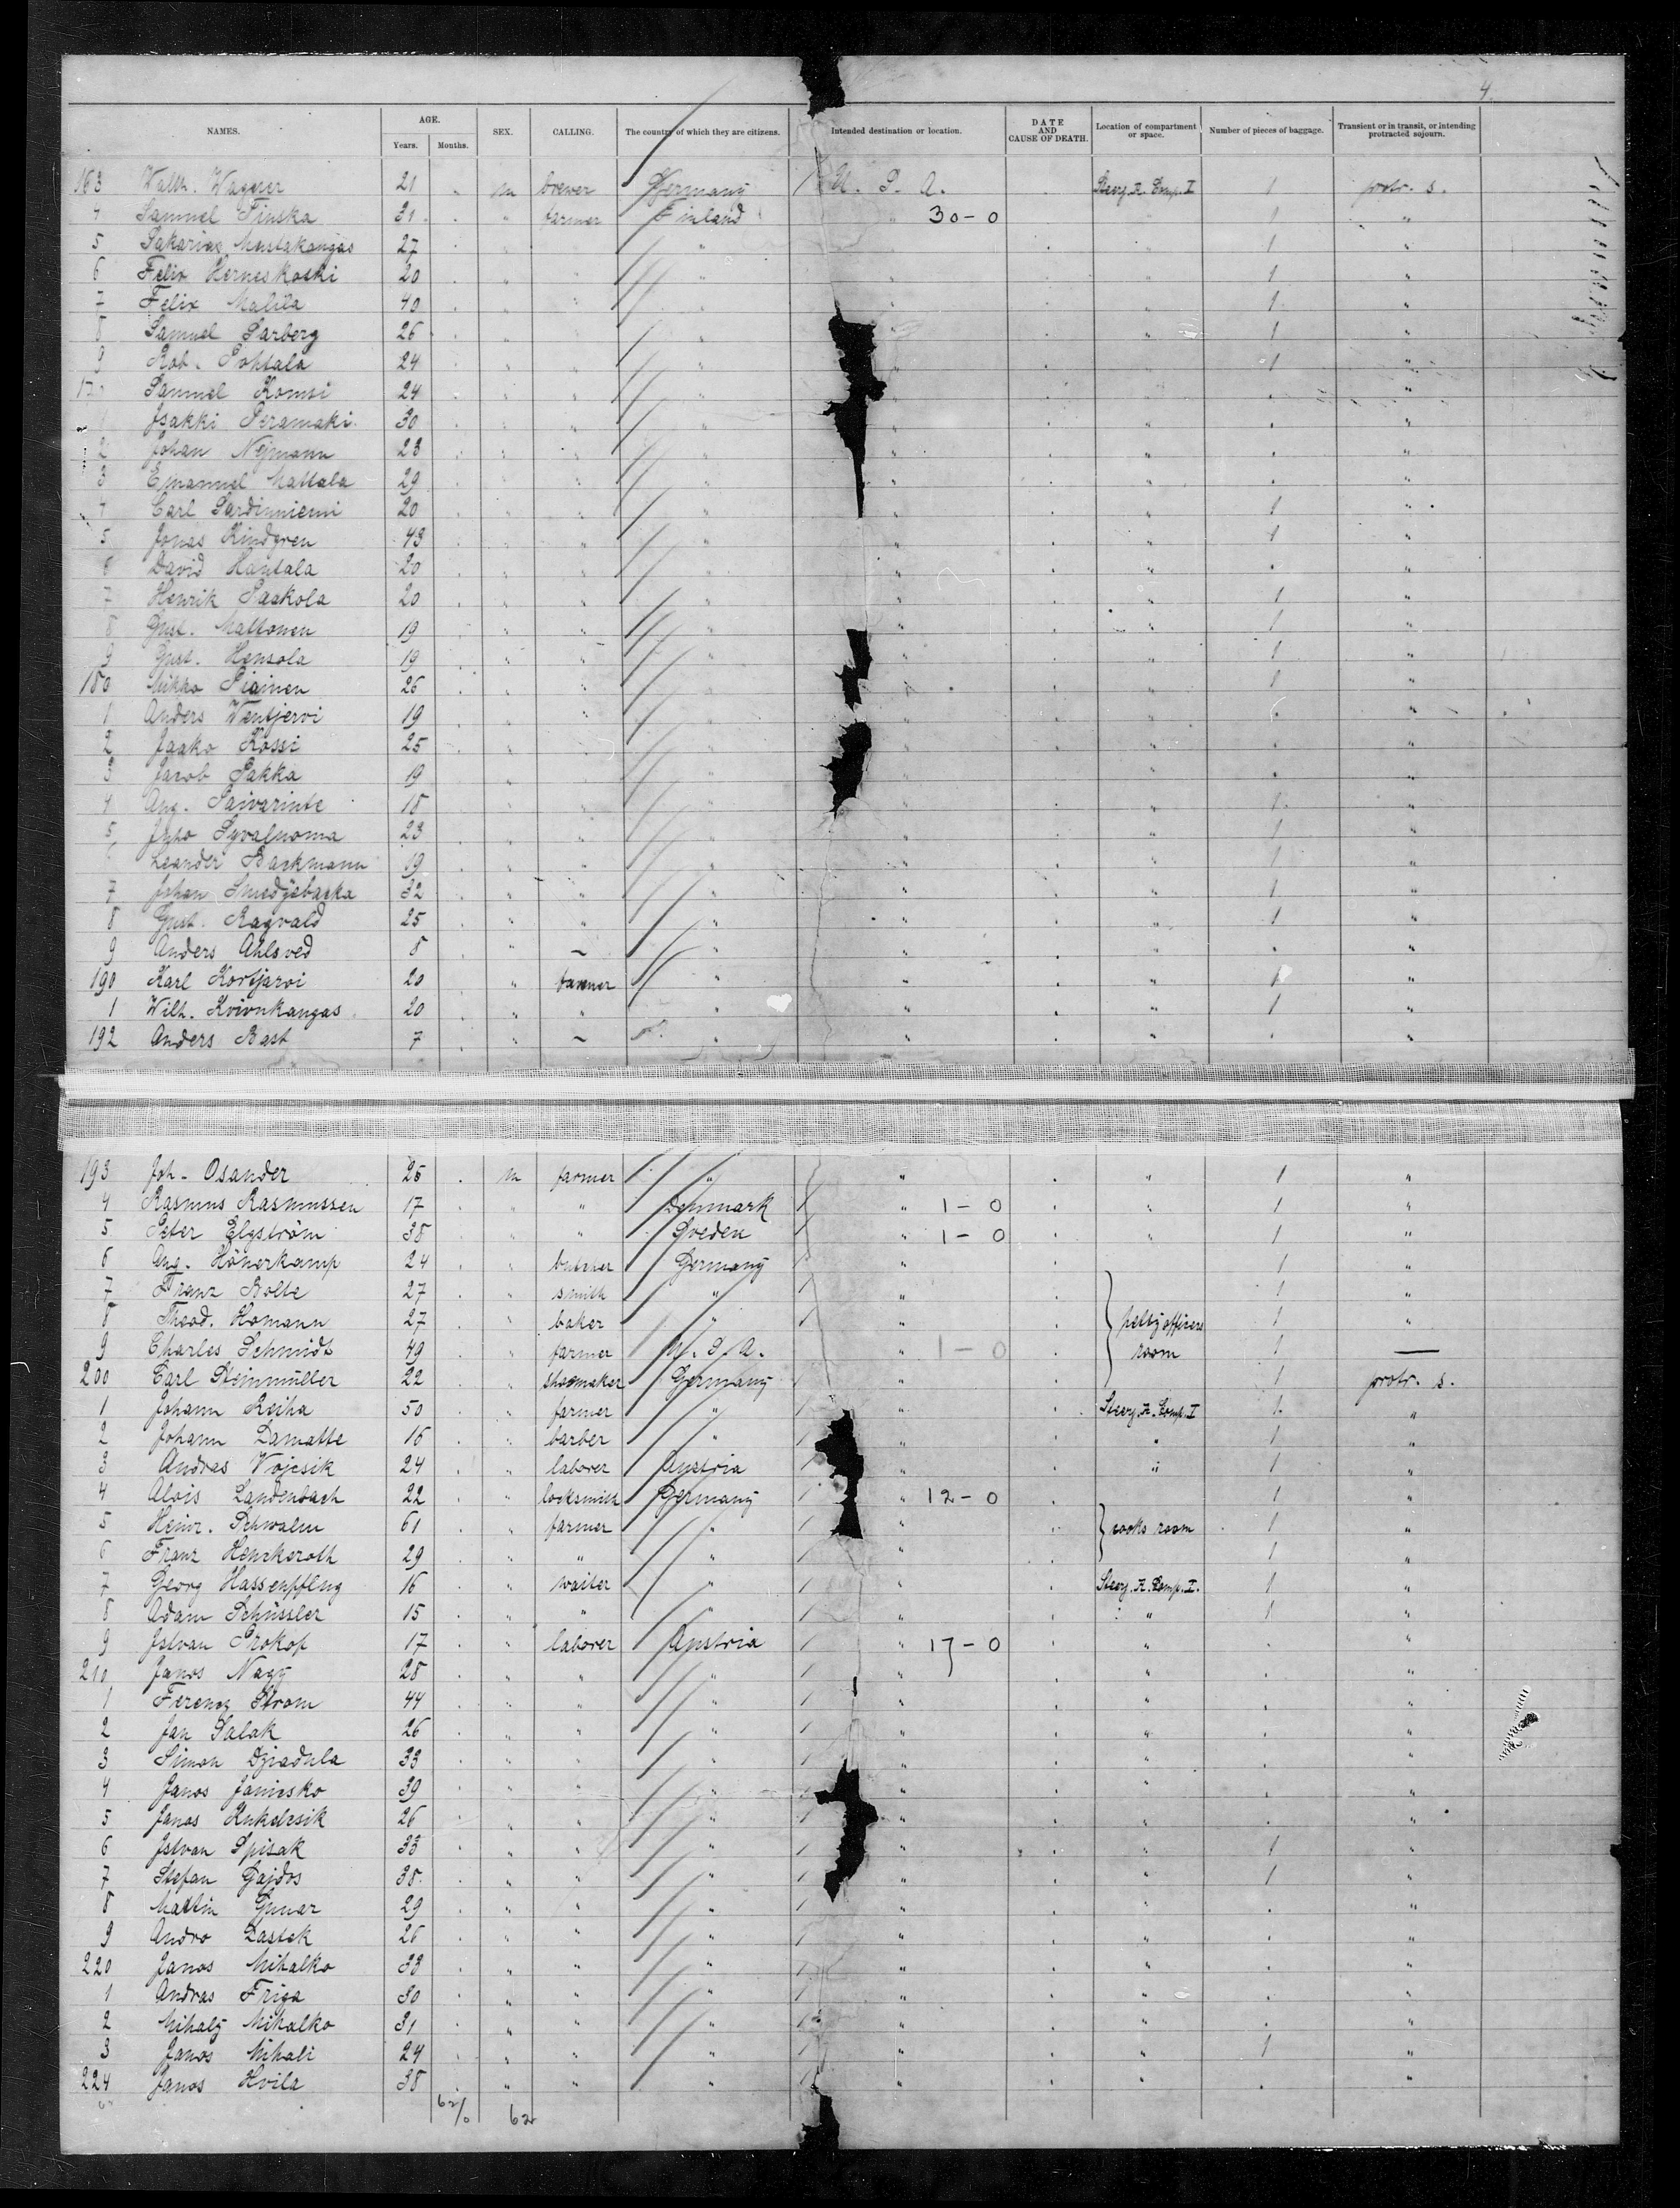 4
NAMES. AGE. Years. Months. SEX. CALLING. The country of which they are citizens. Intended destination or location. DATE AND CAUSE OF DEATH. Location of compartment or space. Number of pieces of baggage. Transient or in transit, or intending protracted sojourn.
163 Walth. Wagner 21 . m brewer Germany / U. S. A. . Steer. A. Comp. I 1 protr. s.
4 Samuel Finska 31 . " farmer Finland " 30-0 1 "
5 Sakarias Mustakangas 27 . " " . 1 "
6 Felix Herneskoski 20 . " " . " 1 "
7 Felix Malila 40 . " . " 1 "
8 Samuel Sarberg 26 . " " " . " 1 "
9 Rob. Pohtala 24 . " " " " . 1 "
170 Samuel Komsi 24 . " " " . "
1 Isakki Peramaki 30 . " " " " . " . "
2 Johan Nejmann 23 . " " " " . " . "
3 Emanuel Mattala 29 . " " " " . " . "
4 Carl Sardinniemi 20 . " " " " . " 1 "
5 Jonas Kindgren 43 . " " " " . " 1 "
6 David Hantala 20 . " " " " . " . "
7 Henrik Saakola 20 . " " " " . " 1 "
8 Gust. Mattonen 19 . " " " " . " 1 "
9 Gust. Hensola 19 . " " " " . " 1 "
180 Mikko Piainen 26 . " " " " . " 1 "
1 Anders Wentjervi 19 . " " " " . " . "
2 Jaako Kossi 25 . " " " " . " . "
3 Jacob Sakka 19 . " " " " " . "
4 Aug. Saivarinte 18 . " " " " . " 1 "
5 Juho Syvaluoma 23 . " " " " . " 1 "
6 Leander Backmann 19 . " " " " . " 1 "
7 Johan Smedjebacka 32 . " " " " . " 1 "
8 Gust. Ragvald 25 . " " " " . " 1 "
9 Anders Ahlsved 8 . " – " " . " . "
190 Karl Kortjarvi 20 . " farmer " " . " 1 "
1 Wilh. Kvivnkangas 20 . " " " " . " 1 "
192 Anders Bast 7 . " – " " . " . "
193 Joh. Osander 25 . m farmer " " . " 1 "
4 Rasmus Rasmussen 17 . " " Denmark / " 1-0 . " 1 "
5 Peter Elgström 38 . " " Sveden / " 1-0 . " 1 "
6 Aug. Hönerkamp 24 . " butcher Germany / " . 1 "
7 Franz Bolte 27 . " smith " / " . 1 "
8 Theod. Homann 27 . " baker " / " . petty officers 1 "
9 Charles Schmidt 49 . " farmer U. S. A. " 1-0 . room 1 —
200 Carl Steinmüller 22 . " shoemaker Germany / " . 1 protr. s.
1 Johann Reiha 50 . " farmer " / " . Steer. A. Comp. I 1 "
2 Johann Damatte 16 . " barber " / " . " 1 "
3 Andras Vojcsik 24 . " laborer Austria / " . " 1 "
4 Alois Landenbach 22 . " locksmith Germany / " 12-0 . 1 "
5 Heinr. Schwalm 61 . " farmer " / " . cooks room 1 "
6 Franz Henkeroth 29 . " " " / " . 1 "
7 Georg Hassenpflug 16 . " waiter " / " . Steer. A. Comp. I. 1 "
8 Adam Schüssler 15 . " " " / " . " 1 "
9 Istvan Prokop 17 . " laborer Austria / " 17-0 . " . "
210 Janos Nagy 28 . " " " / " . " . "
1 Ferencz Strom 44 . " " " / " . " . "
2 Jan Salak 26 . " " " / " . " . "
3 Simon Dziadula 33 . " " " / " . " . "
4 Janos Janicsko 39 . " " " / " . " . "
5 Janos Kukolcsik 26 . " " " / " . " . "
6 Istvan Spisak 33 . " " " / " . " 1 "
7 Stefan Gajdos 38 . " " " / " . " 1 "
8 Martin Gmuar 29 . " " " / " . " . "
9 Andro Zastek 26 . " " " / " . " . "
220 Janos Mihalko 33 . " " " / " . " . "
1 Andras Friga 30 . " " " / " . " . "
2 Mihaly Mihalko 31 . " " " / " . " . "
3 Janos Mihali 24 . " " " / " . " 1 "
224 Janos Hvila 38 . " " " / " . " . "
62/0 62